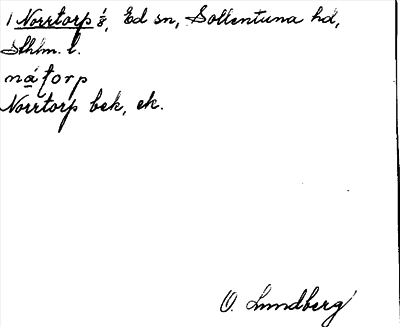 1 Norrtorp s, Ed sn, Sollentuna hd,
Sthlm. l.
nátorp
Norrtorp bek, ek.
O. Lundberg